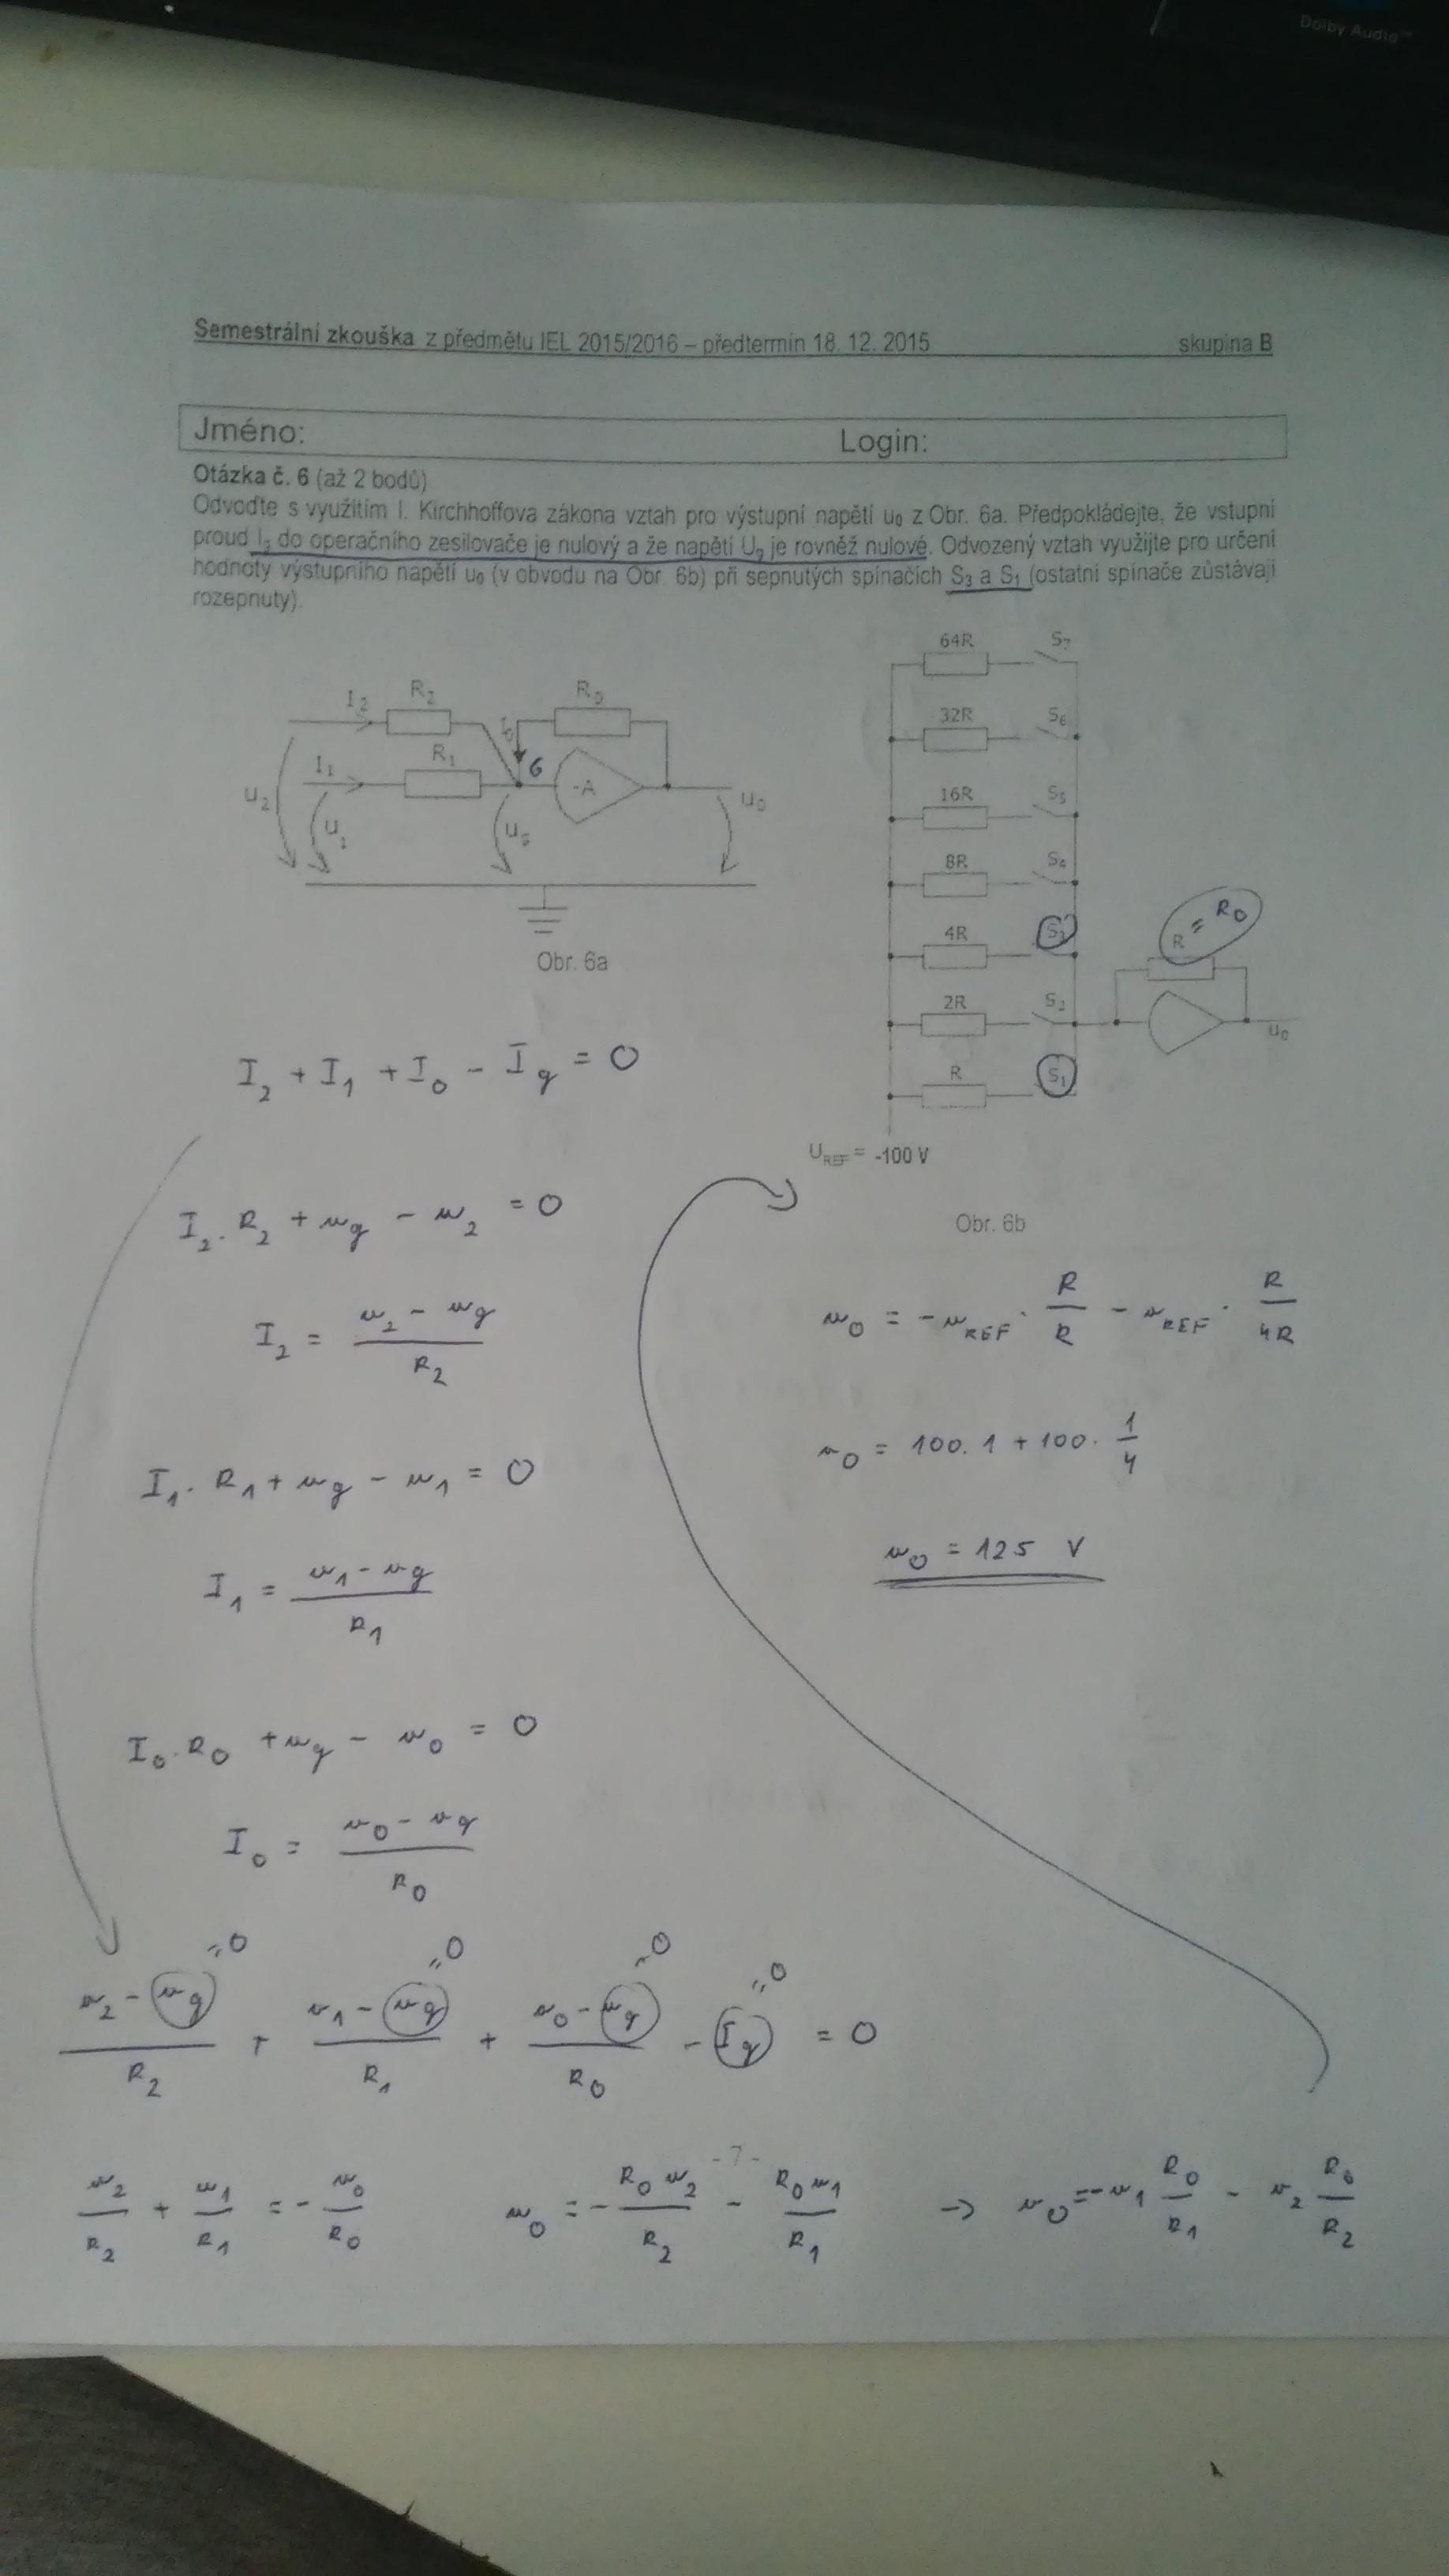 Dolby Audio™
Semestrální zkouška z předmětu IEL 2015/2016 – předtermín 18. 12. 2015 skupina B
Jméno: Login:
Otázka č. 6 (až 2 bodů)
Odvoďte s využitím I. Kirchhoffova zákona vztah pro výstupní napětí u₀ z Obr. 6a. Předpokládejte, že vstupní
proud I₉ do operačního zesilovače je nulový a že napětí U₉ je rovněž nulové. Odvozený vztah využijte pro určení
hodnoty výstupního napětí u₀ (v obvodu na Obr. 6b) při sepnutých spínačích S₃ a S₁ (ostatní spínače zůstávají
rozepnuty).
I₂ R₂ I₀ R₀
I₁ R₁ G -A
u₂ u₁ u₉ u₀
Obr. 6a
64R S₇
32R S₆
16R S₅
8R S₄
4R S₃
R = R₀
2R S₂
u₀
R S₁
U_REF = -100 V
Obr. 6b
I₂ + I₁ + I₀ - I_g = 0
I₂ . R₂ + u_g - u₂ = 0
I₂ = (u₂ - u_g) / R₂
I₁ . R₁ + u_g - u₁ = 0
I₁ = (u₁ - u_g) / R₁
I₀ . R₀ + u_g - u₀ = 0
I₀ = (u₀ - u_g) / R₀
=0 =0 =0 =0
(u₂ - u_g) / R₂ + (u₁ - u_g) / R₁ + (u₀ - u_g) / R₀ - I_g = 0
u₂ / R₂ + u₁ / R₁ = - u₀ / R₀
u₀ = - R₀ u₂ / R₂ - R₀ u₁ / R₁ → u₀ = - u₁ R₀ / R₁ - u₂ R₀ / R₂
- 7 -
u₀ = - u_REF . R / R - u_REF . R / 4R
u₀ = 100 . 1 + 100 . 1 / 4
u₀ = 125 V